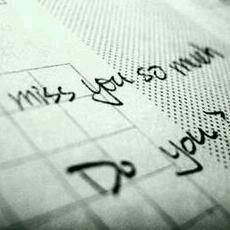 miss you so much
Do you?